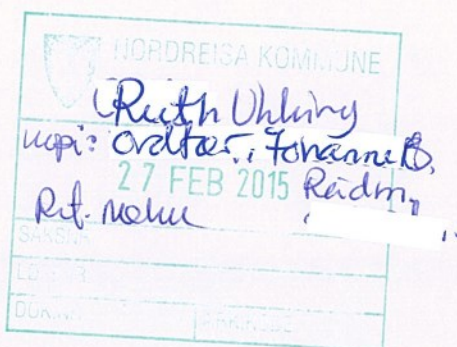 NORDREISA KOMMUNE
Ruth Uhlving
kopi: Ordfør., Johanne B.
27 FEB 2015 Rådm,
Ref. 
SAKSNR
DOK.NR